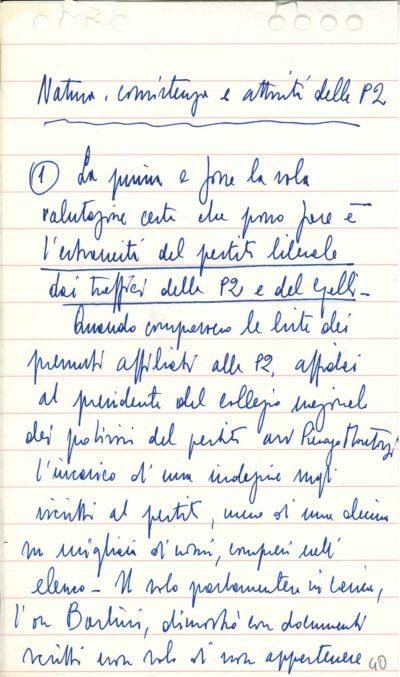 Natura, consistenza e attività della P2
① La prima e forse la sola
valutazione certa che posso fare è
l'estraneità del partito liberale
dai traffici della P2 e del Gelli -
Quando comparvero le liste dei
presunti affiliati alla P2, affidai
al presidente del collegio nazionale
dei probiviri del partito avv
l'incarico di una indagine sugli
iscritti al partito, meno di una decina
su migliaia di nomi, compresi nell'
elenco - Il solo parlamentare in carica,
l'on Baslini, dimostrò con documenti
scritti non solo di non appartenere
40